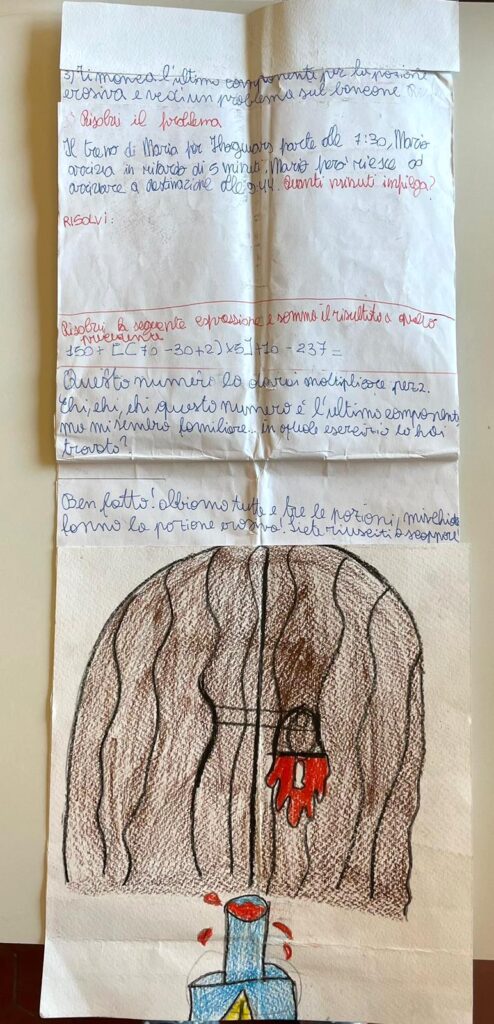 3) Ti manca l'ultimo componente per la pozione
erosiva e vedi un problema sul bancone
Risolvi il problema
Il treno di Maria per Hogwars parte alle 7:30, Mario
arriva in ritardo di 5 minuti, Mario però riesce ad
arrivare a destinazione alle 9:44. Quanti minuti impiega?
RISOLVI:
Risolvi la seguente espressione e somma il risultato a quello
precedente
150 + [(70 - 30 + 2) x 5] + 10 - 237 =
Questo numero lo dovrai moltiplicare per 2.
Ehi, ehi, ehi questo numero è l'ultimo componente
ma mi sembra familiare... in quale esercizio lo hai
trovato?
Ben fatto! abbiamo tutte e tre le pozioni, mischiate
fanno la pozione erosiva! Siete riusciti a scappare!